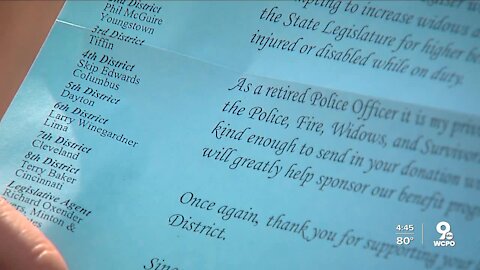 2nd District
Phil McGuire
Youngstown
3rd District
Tiffin
4th District
Skip Edwards
Columbus
5th District
Dayton
6th District
Larry Winegardner
Lima
7th District
Cleveland
8th District
Terry Baker
Cincinnati
Legislative Agent
Richard Oxender
Minton &
to increase widows a
the State Legislature for higher be
injured or disabled while on duty.
As a retired Police Officer it is my pri
the Police, Fire, Widows, and Survivor
kind enough to send in your donation w
will greatly help sponsor our benefit progr
Once again, thank you for supporting your
District.
4:45
80°
9
WCPO